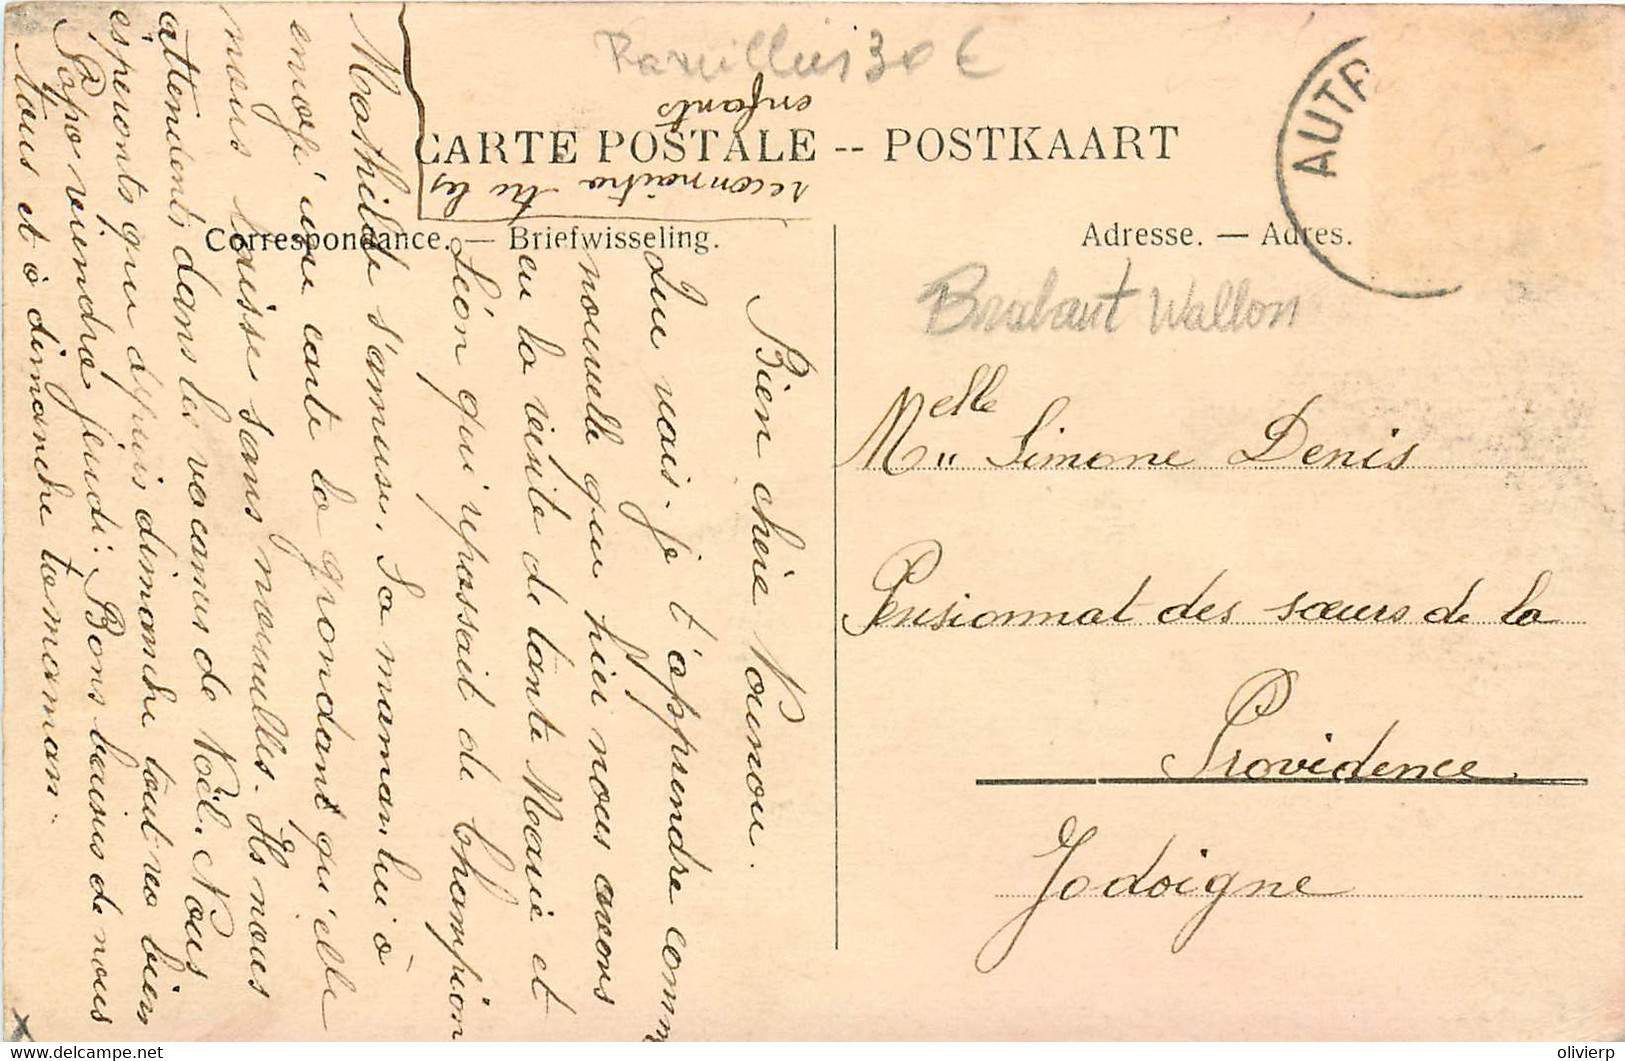 Ramillies 30 €
CARTE POSTALE -- POSTKAART
Correspondance. — Briefwisseling.
Adresse. — Adres.
AUTR
Brabant Wallon
Melle Simone Denis
Pensionnat des sœurs de la
Providence.
Jodoigne
Bien chère Nounou.
Que vais-je t'apprendre comm
nouvelle que hier nous avons
eu la visite de tante Marie et
Léon qui repassait de Champion
Mathilde s'amuse. Sa maman lui a
envoyé une carte la grondant qu'elle
nous laisse sans nouvelles. Ils nous
attendent dans les vacances de Noël. Nous
esperonts que depuis dimanche tout va bien
Papa viendra jeudi. Bons baisers de nous
tous et à dimanche ta maman.
reconnaitra les
enfants
x
olivierp